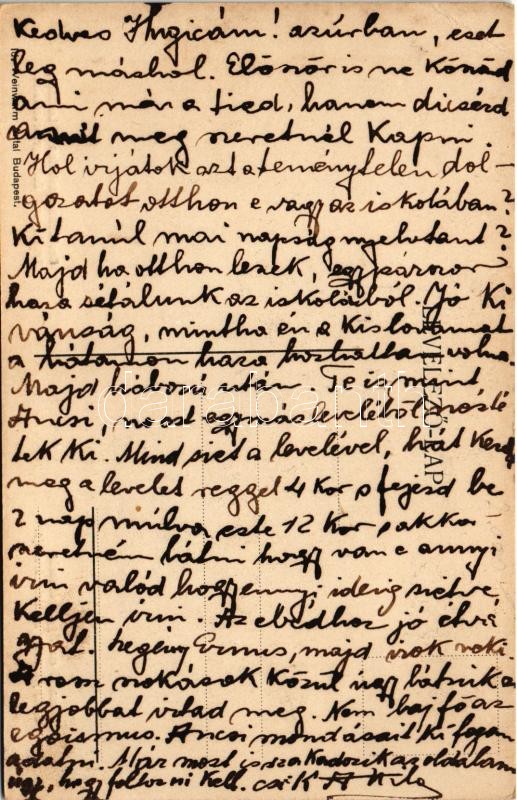 Kedves Ihgicám! azúrban, eset
leg máshol. Először is ne kérd
ami már a tied, hanem dicsérd
amit meg szeretnél Kapni.
Hol irjátok azt a teménytelen dol-
gozatot otthon e vagy az iskolában?
Ki tanúl mai napság nyelvtant?
Majd ha otthon leszek, egypárszor
haza sétálunk az iskolából. Jó Ki
vánság, mintha én a Kislovamat
a hátamon haza hozhattam volna.
Majd háború után. Te is mint
Ancsi, most egymás levelétől
tek Ki. Mind siet a levelével, hát Kezd
meg a levelet reggel 4 Kor s fejezd be
2 nap múlva este 12 Kor s akko
szeretném látni hogy van e annyi
irni valód hogy ennyi ideig sietve
Kelljen irni. Az ebédhez jó étvá
gyat. Szegény Ernus, majd irok neki.
A rossz szokások Közül úgy látszik a
legjobbat irtad meg. Nem baj főaz
egoismus. Ancsi mondásait ki fogom
adatni. Már most is az oldalam
úgy, hogy foltozni Kell. csik Attila
LEVELEZŐ-LAP
Weinwurm Antal Budapest.
darabanth